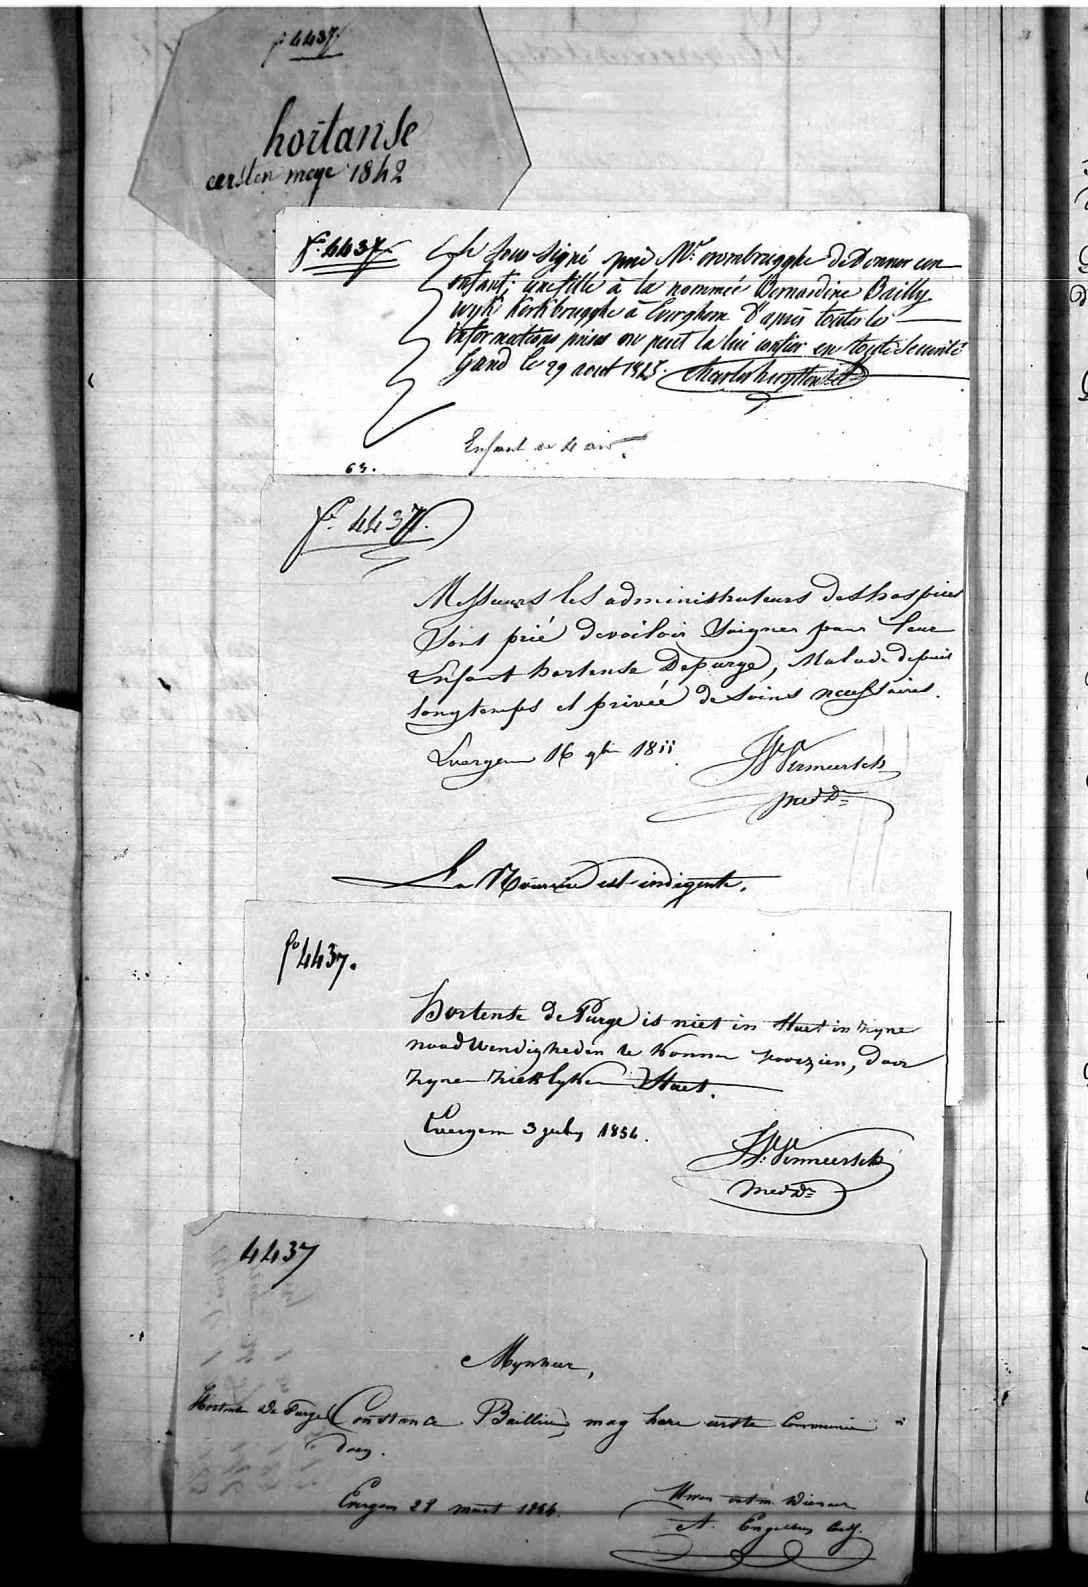 fo 4437.
hortanse
eersten meye 1842
fo. 4437.
Le sous signé prie Mr. Crombrugghe de donner un
enfant; une fille à la nommée Bernardine Bailly
wyk Kerkbrugghe à Everghem d'après toutes les
informations prises on peut la lui confier en toute sécurité
Gand le 29 aout 1845.
Enfant de 4 ans.
63.
fo. 4437.
Messieurs les administrateurs des hospices
sont prié de voiloir soigner pour leur
Enfant hortense Depurge, Malade depuis
longtemps et privée de soins necessaires.
Evergem 16 9bre
Vermeersch
med Dr
La Nourrice est indigente.
fo 4437.
Hortense de Purge is niet in staet in zyne
noodwendigheden te konnen voorzien, door
zynen zieklyken staet.
Evergem 3 july 1856.
Vermeersch
med Dr
4437
Mynheer,
Hortense De Purge (Constance Baillieu) mag hare eerste Communie
doen.
Evergem 28 maert
Uwen ootm. Dienaer
A. Engelbin